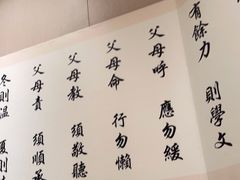 有餘力 則學文
父母呼 應勿緩
父母命 行勿懶
父母教 須敬聽
父母責 須順承
冬則溫 夏則